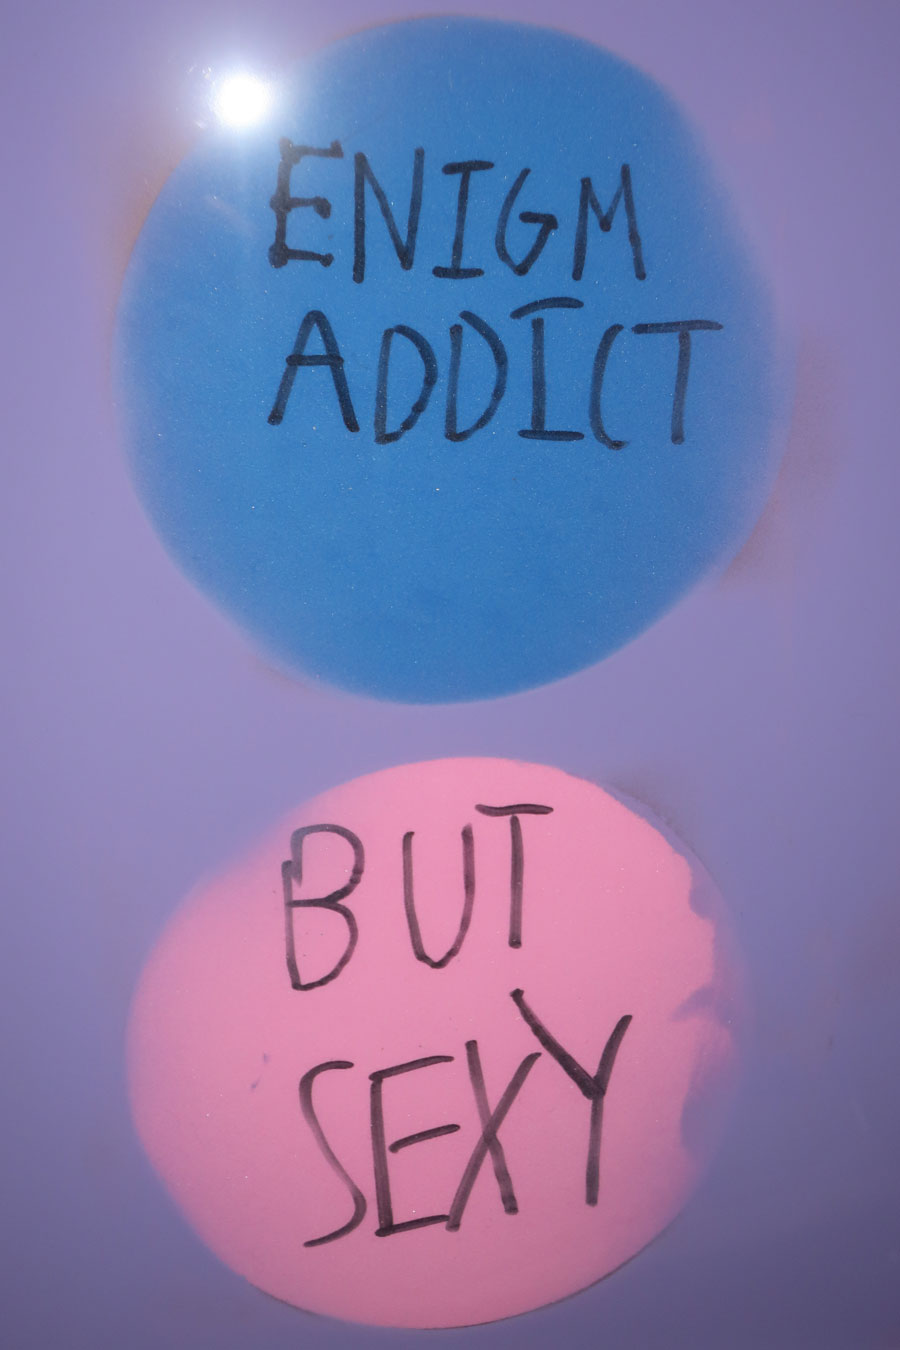 ENIGM
ADDICT
BUT
SEXY